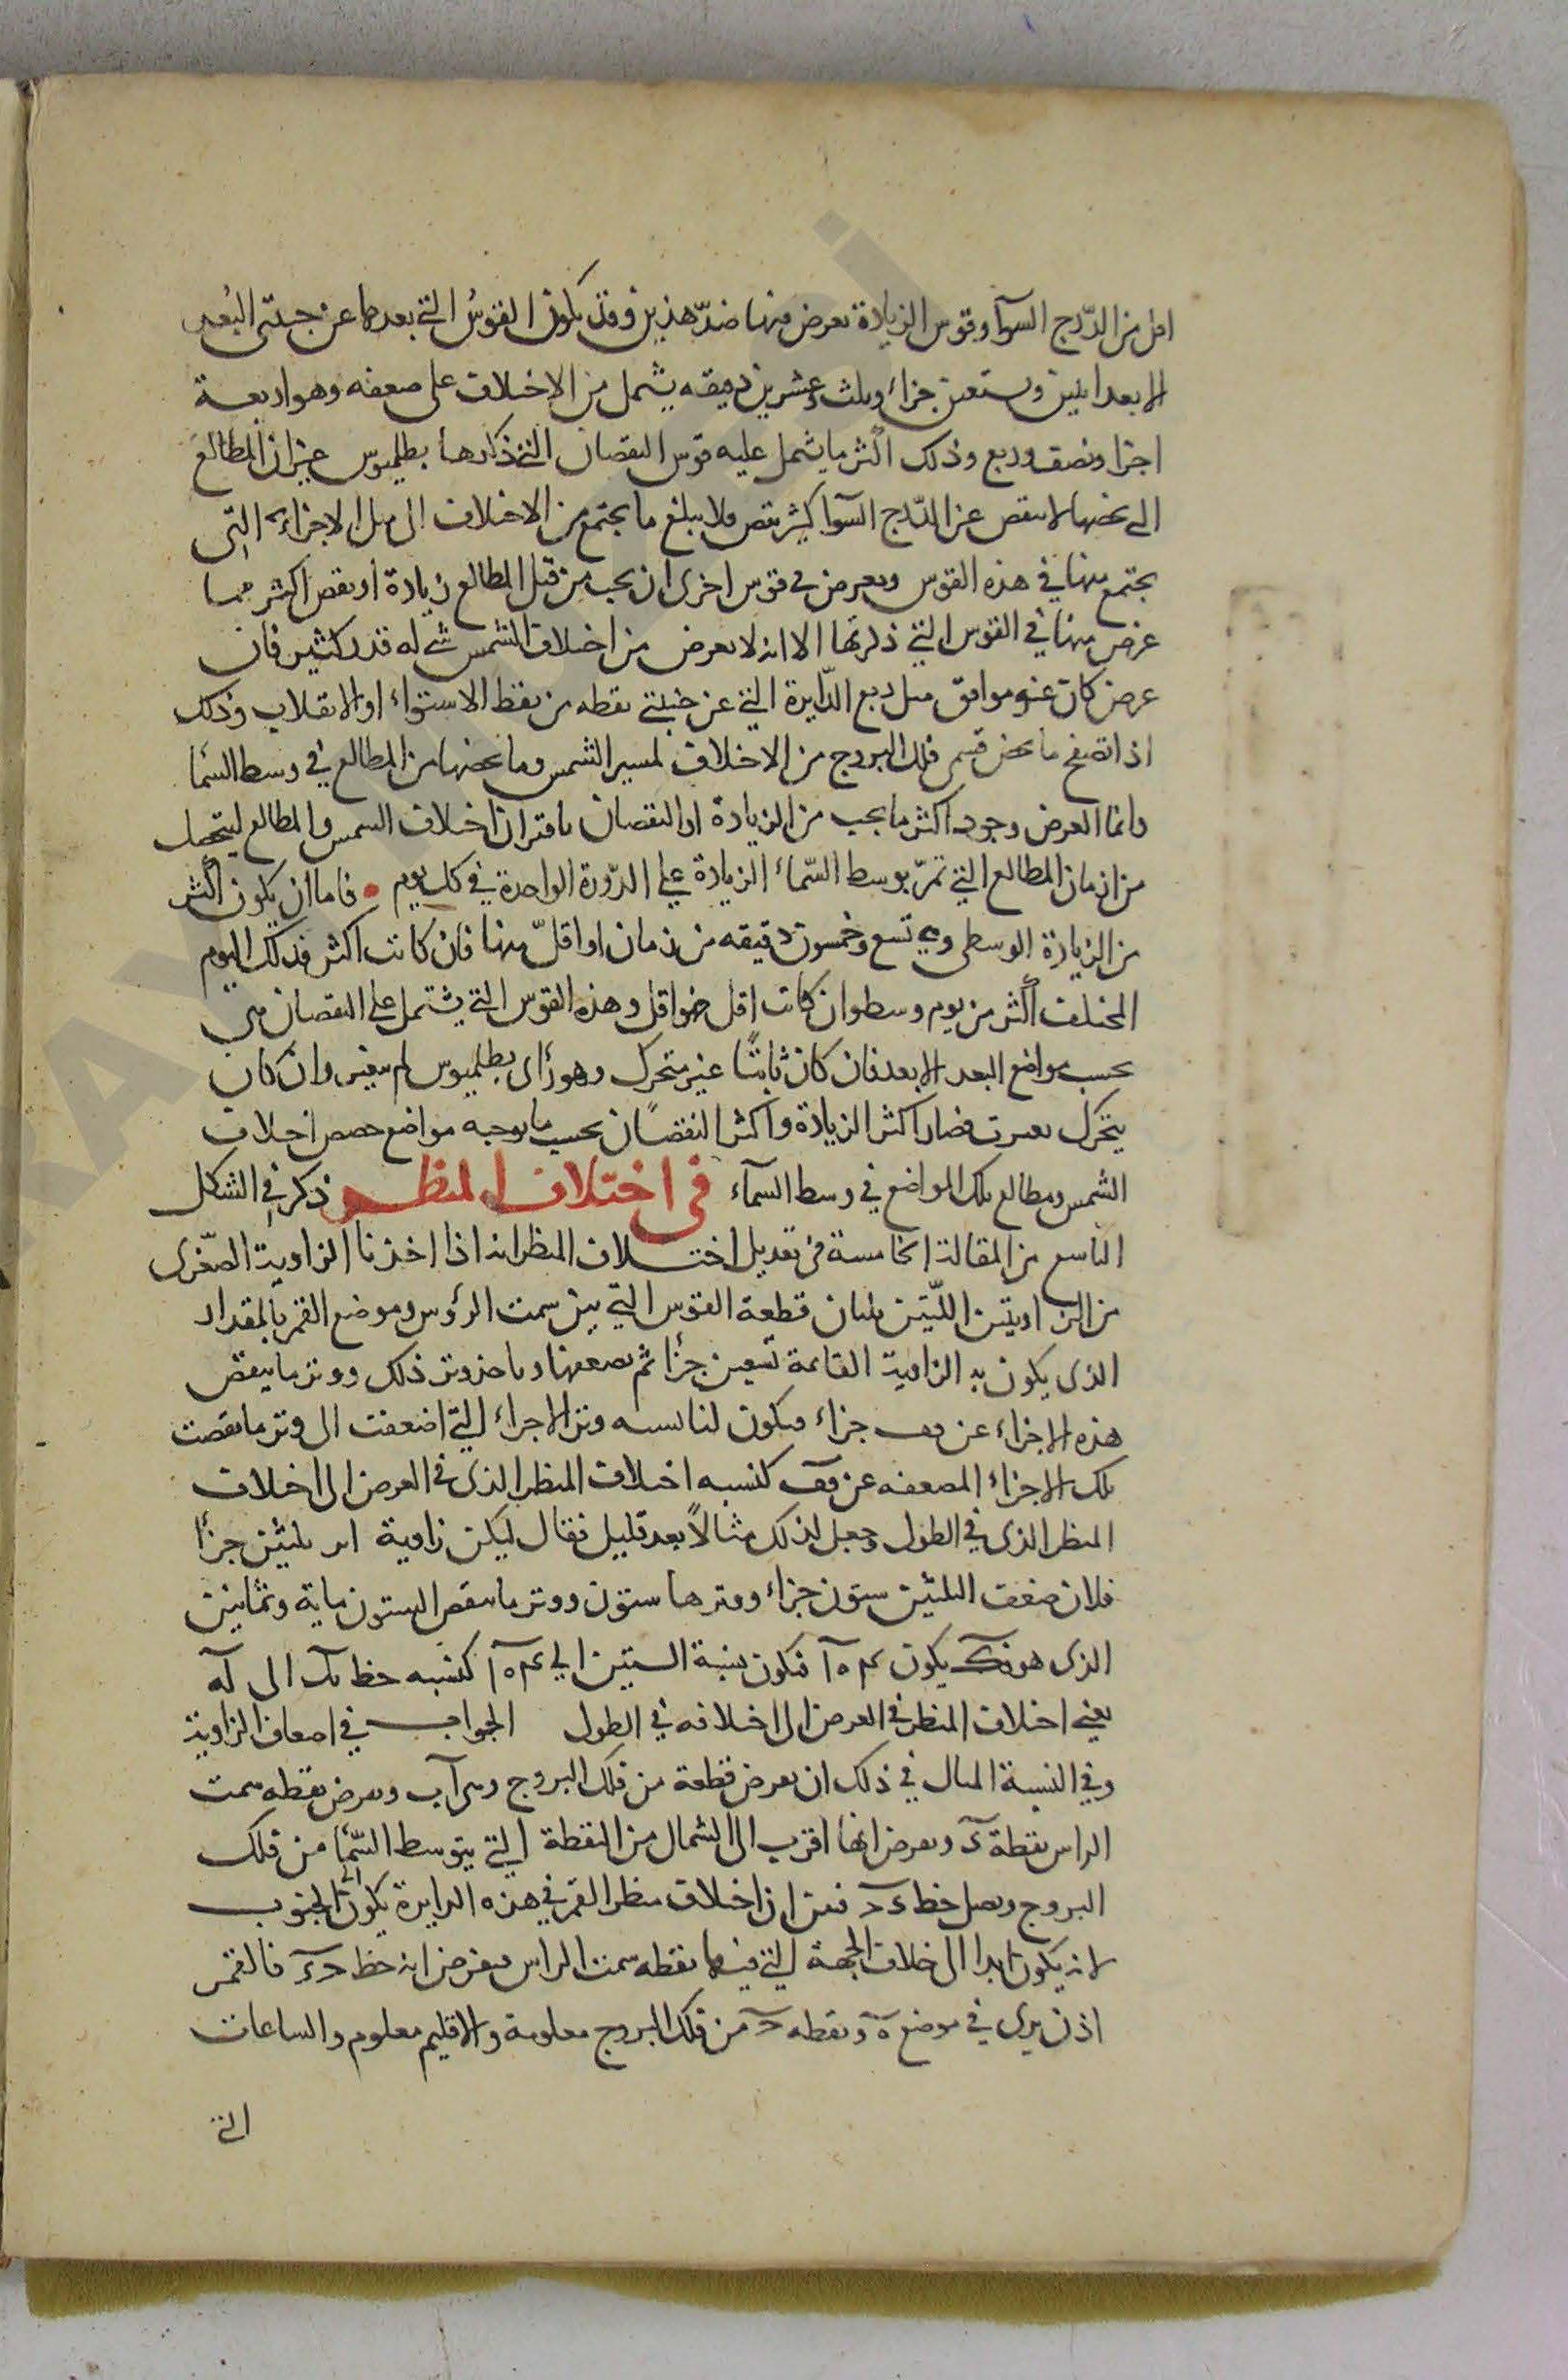 اقل من الدّرج السوآ وقوس الزيادة يعرض فيها ضدّ هذين وقد يكون القوسُ التي بعدها عن جنبتى البُعد
الابعد اثنين وتسعين جزاء وثلث وعشرين دقيقه يشتمل من الاختلاف على ضعفه وهو اربعة
اجزا ونصف وربع وذلك اكثر ما يشتمل عليه قوس النقصان التي ذكرها بطلميوس غير ان المطالع
التي تخصها لا تنقص عن الدّرج السوآ كثير نقص ولا يبلغ ما يجتمع من الاختلاف الى مثل الاجزاء التي
يجتمع منها في هذه القوس ويعرض في قوس اخرى ان يجب من قبل المطالع زيادة او نقص اكثر مما
عرض منها في القوس التي ذكرتها الا انه لا يعرض من اختلاف الشمس شى له قدر كثير فان
عرض كان غير موافق مثل ربع الدّايرة التي عن جنبتي نقطه من نقط الاستواء او الانقلاب وذلك
اذا تصفح ما يخص قسمى فلك البروج من الاختلاف لمسير الشمس وما يخصها من المطالع في وسط السّما
وانما الغرض وجود اكثر ما يجب من الزيادة او النقصان باقتران اختلاف الشمس والمطالع ليتحصل
من ازمان المطالع التي تمرّ بوسط السّماء الزيادة على الدّورة الواحدة في كل يوم • فاما ان يكون اكثر
من الزيادة الوسطى وهي تسع وخمسون دقيقه من زمان او اقلّ منها فان كانت اكثر فذلك اليوم
المختلف اكثر من يوم وسط وان كانت اقل فهو اقل وهذه القوس التي يشتمل على النقصان هي
بحسب مواضع البعد الابعد فان كان ثابتًا غير متحرك وهو رأى بطلميوس لم يتغير وان كان
يتحرك تغيرت فصار اكثر الزيادة واكثر النقصان بحسب ما يوجبه مواضع حصص اختلاف
الشمس ومطالع تلك المواضع في وسط السّمآء في اختلاف المنظر ذكر في الشكل
التاسع من المقالة الخامسة في تعديل اختلاف المنظر انه اذا اخذنا الزاوية الصّغرى
من الزاويتين اللّتين تليان قطعة القوس التي بين سمت الرؤس وموضع القمر بالمقدار
الذى يكون به الزاوية القائمة تسعين جزأ ثم نضعفها وناخذ وتر ذلك ووتر ما ينقص
هذه الاجزاء عن قف جزاء فيكون لنا نسبه وتر الاجزاء التي اضعفت الى وتر ما نقصت
تلك الاجزاء المضعفه عن قف كنسبه اختلاف المنظر الذى في العرض الى اختلاف
المنظر الذى في الطول وجعل لذلك مثالًا بعد قليل فقال ليكن زاوية ثلثين جزأ
فلان ضعف الثلثين ستون جزاء ووترها ستون ووتر ما ينقص الستون ماية وثمانين
الذى هو قك يكون ١٠٤ فيكون نسبة الستين الى ١٠٤ كنسبه خط الى
يعني اختلاف المنظر في العرض الى اختلافه في الطول الجواب في اضعاف الزاوية
وفي النسبة المثال في ذلك ان يعرض قطعة من فلك البروج وهى آب ويعرض نقطه سمت
الراس نقطة ى ويعرض انها اقرب الى الشمال من النقطة التي يتوسط السّما من فلك
البروج ويصل خط فبين ان اختلاف منظر القمر في هذه الدايرة يكون الى الجنوب
لانه يكون ابدا الى خلاف الجهة التي فيها نقطه سمت الراس فيفرض انه خط فالقمر
اذن يرى في موضع ة ونقطه ح من فلك البروج معلومة والاقليم معلوم والساعات
التي